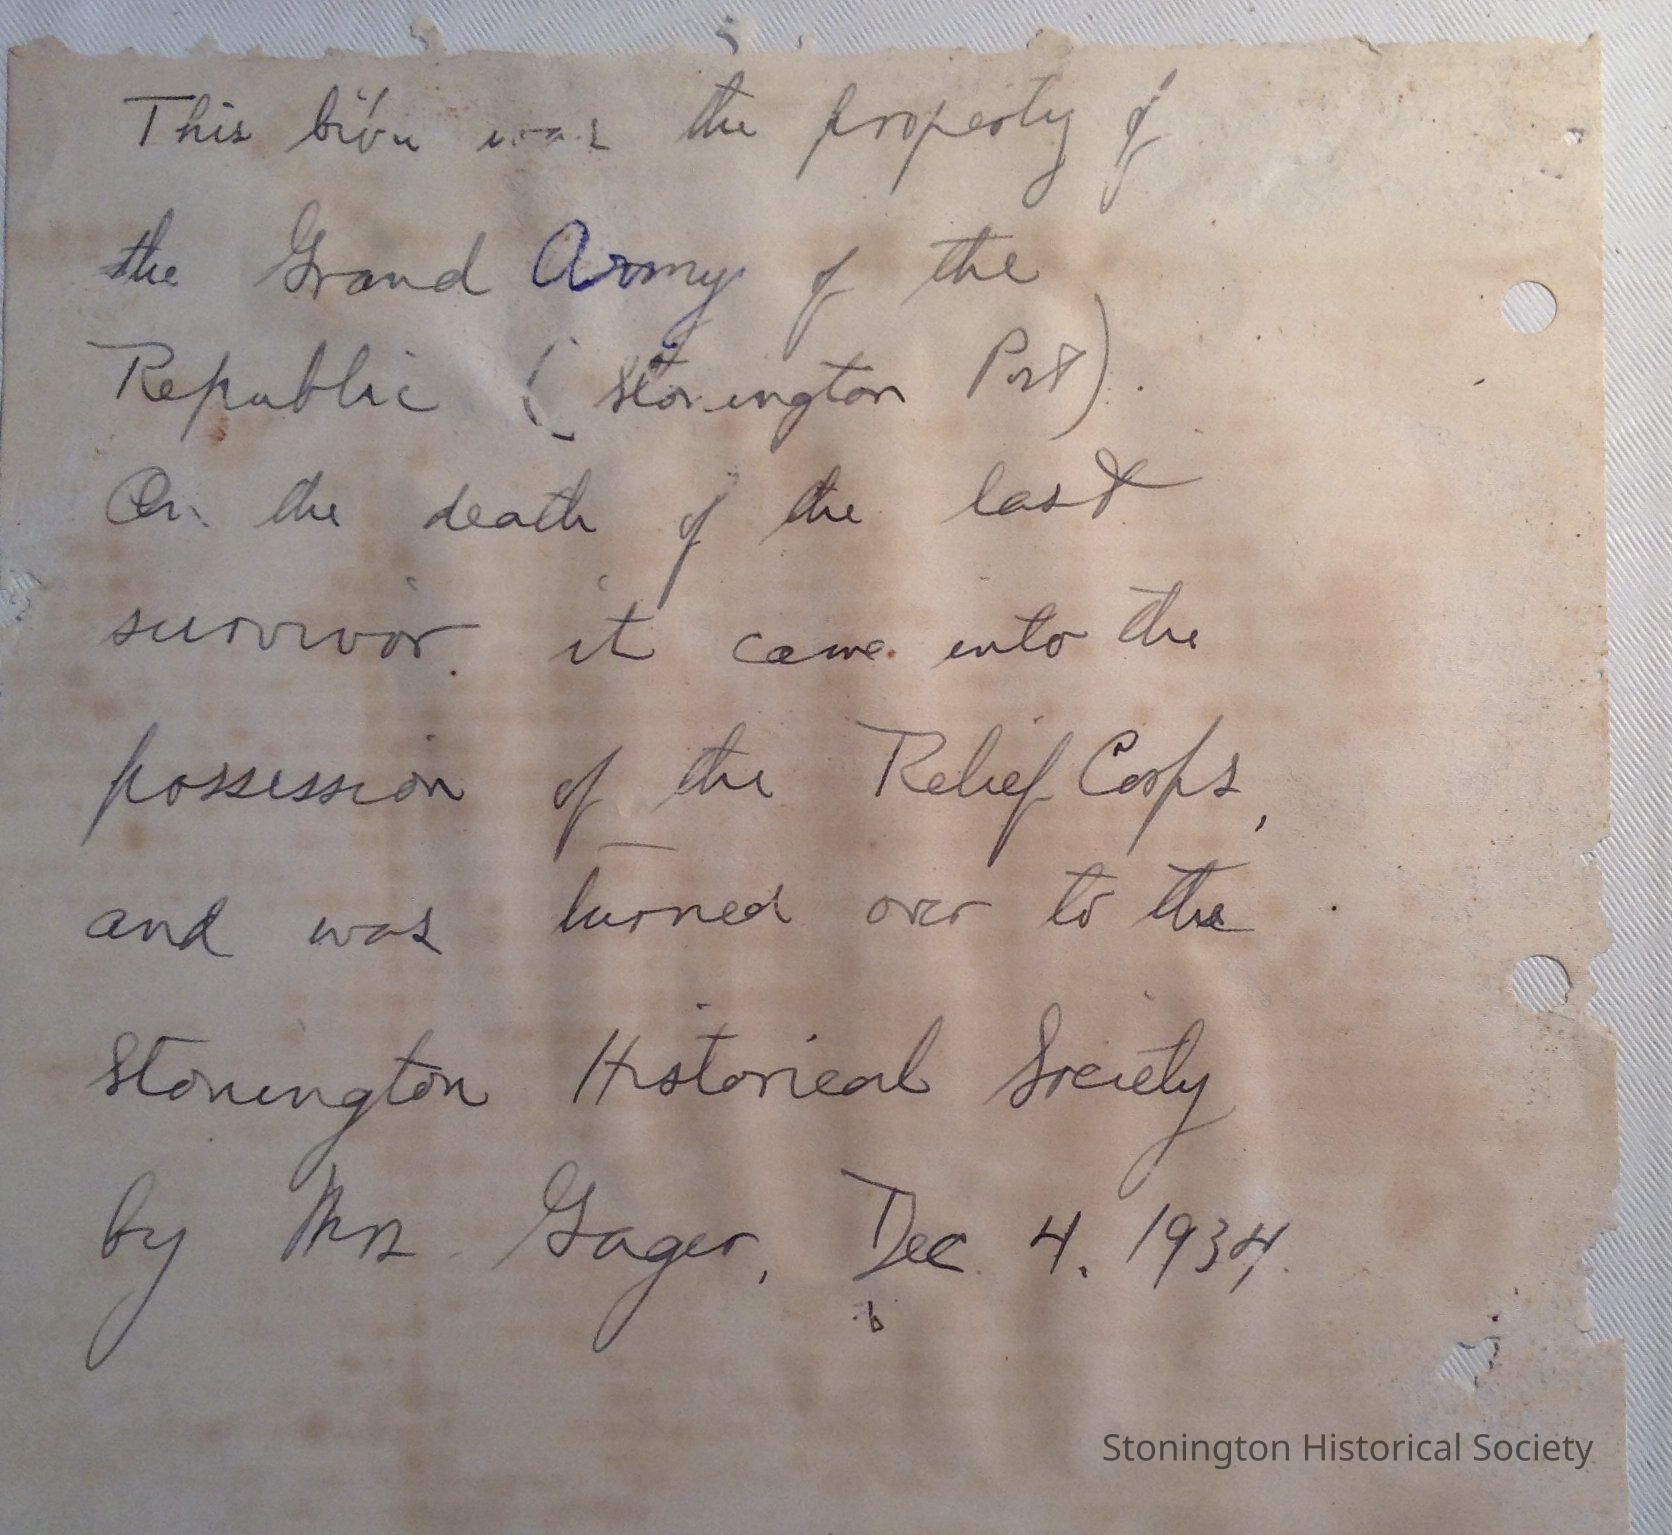 This bible was the property of
the Grand Army of the
Republic (Stonington Post).
On the death of the last
survivor it came into the
possession of the Relief Corps,
and was turned over to the
Stonington Historical Society
by Mrs Gager, Dec 4. 1934.
Stonington Historical Society